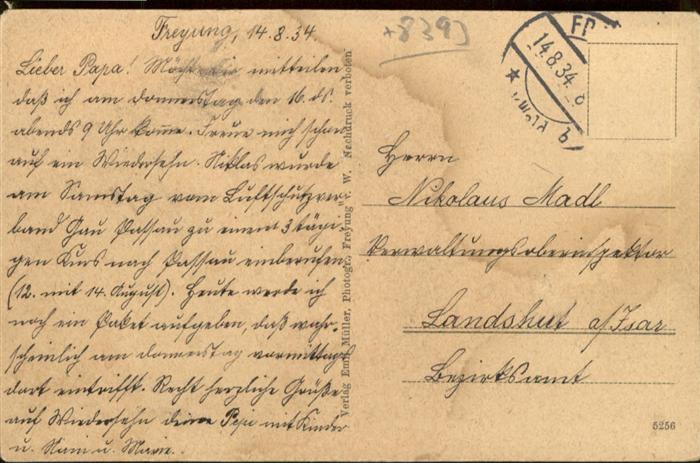 Freyung, 14.8.34.
Lieber Papa! Möchte dir mitteilen
daß ich am Donnerstag den 16. ds.
abends 9 Uhr komme. Freue mich schon
auf ein Wiedersehn. Niklas wurde
am Samstag vom Luftschutzver-
band Gau Passau zu einem 3 tägi-
gen Kurs nach Passau einberufen
(12. mit 14. August). Heute werde ich
noch ein Paket aufgeben, daß wahr-
scheinlich am Donnerstag vormittags
dort eintrifft. Recht herzliche Grüße
auf Wiedersehn deine Pepi mit Kinder
u. Mari u. Marie.
Verlag Emil Müller, Photogr., Freyung v. W. Nachdruck verboten
+8393
14.8.34.
Herrn
Nikolaus Madl
Verwaltungsoberinspektor
Landshut a/Isar
Bezirksamt
5256